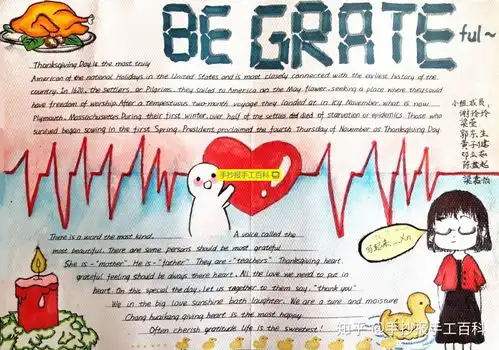 BE GRATEful~
Thanksgiving Day is the most truly
American of the national Holidays in the United States and is most closely connected with the earliest history of the
country. In 1620, the settlers, or Pilgrims, they sailed to America on the May flower, seeking a place where they could
have freedom of worship. After a tempestuous two-month voyage they landed at in icy November, what is now
Plymouth, Massachusetts. During their first winter, over half of the settlers died of starvation or epidemics. Those who
survived began sowing in the first Spring. President proclaimed the fourth Thursday of November as Thanksgiving Day
小组成员:
谢玲玲
梁莹
郭东生
黄子健
邓
陈
梁
手抄报手工百科
There is a word the most kind. A voice called the
most beautiful. There are some persons should be most grateful
She is -"mother" He is -"father" They are -"teachers" Thanksgiving heart.
grateful feeling should be always there heart. All the love we need to put in
heart. On this special the day, let us together to them say, "thank you"
We in the big love sunshine bath laughter. We are a tune and moisture
Chang huaikang giving heart is the most happy
Often cherish gratitude life is the sweetest!
知乎 @手抄报手工百科